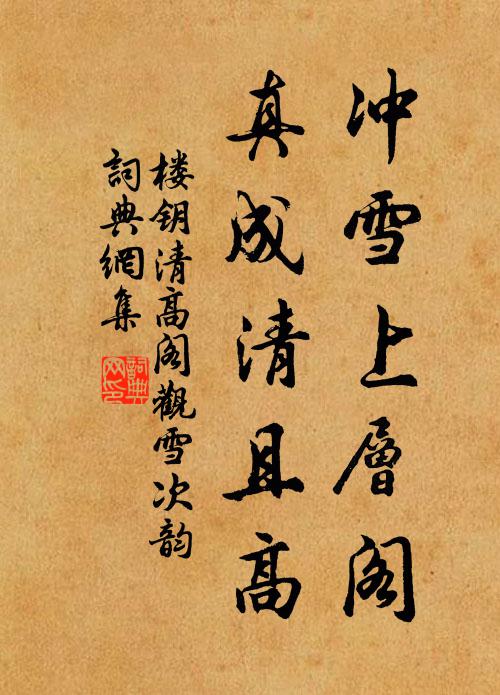 冲雪上層阁
真成清且高
楼钥清高阁觀雪次韵
詞典網集
詞典网印